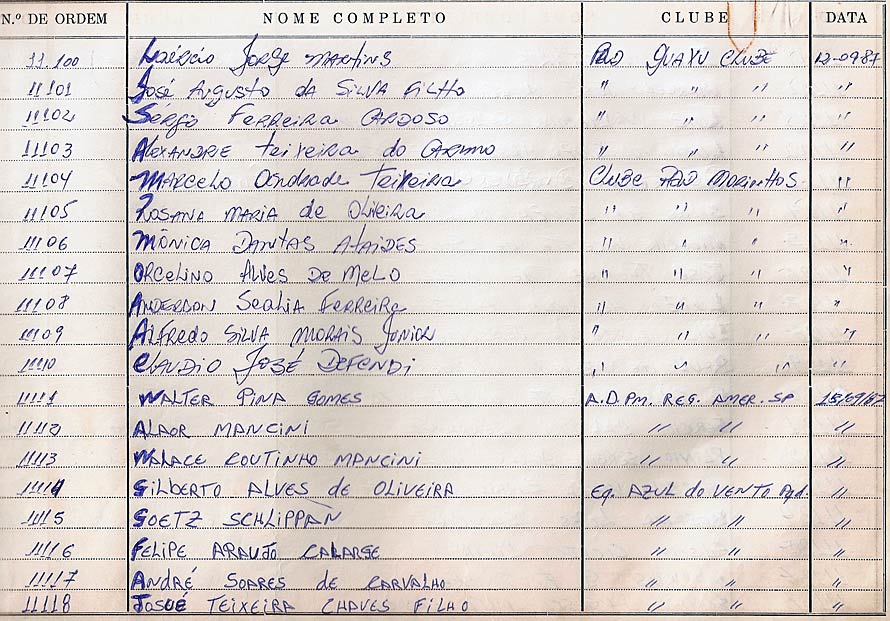 N.º DE ORDEM NOME COMPLETO CLUBE DATA
11.100 Laércio Jorge Martins Pão Guaxu Clube 12-09-87
11101 José Augusto da Silva Filho " " " "
11102 Sérgio Ferreira Cardoso " " " "
11103 Alexandre Teixeira do Carmo " " " "
11104 Marcelo Andrade Teixeira Clube Pão Morinhos "
11105 Rosana Maria de Oliveira " " " "
11106 Mônica Dantas Ataides " " " "
11107 Orcelino Alves De Melo " " " "
11108 Anderson Scalia Ferreira " " " "
11109 Alfredo Silva Morais Junior " " " "
11110 Claudio José Defendi " " " "
11111 Walter Pina Gomes A.D.PM. REG. AMER. SP 15/09/87
11112 Alaor Mancini " " "
11113 Walace Coutinho Mancini " " "
11114 Gilberto Alves de Oliveira Eq. Azul do Vento Pqd. "
11115 Goetz Schlippan " " "
11116 Felipe Araujo Calarge " " "
11117 André Soares de Carvalho " " "
11118 Josué Teixeira Chaves Filho " " "